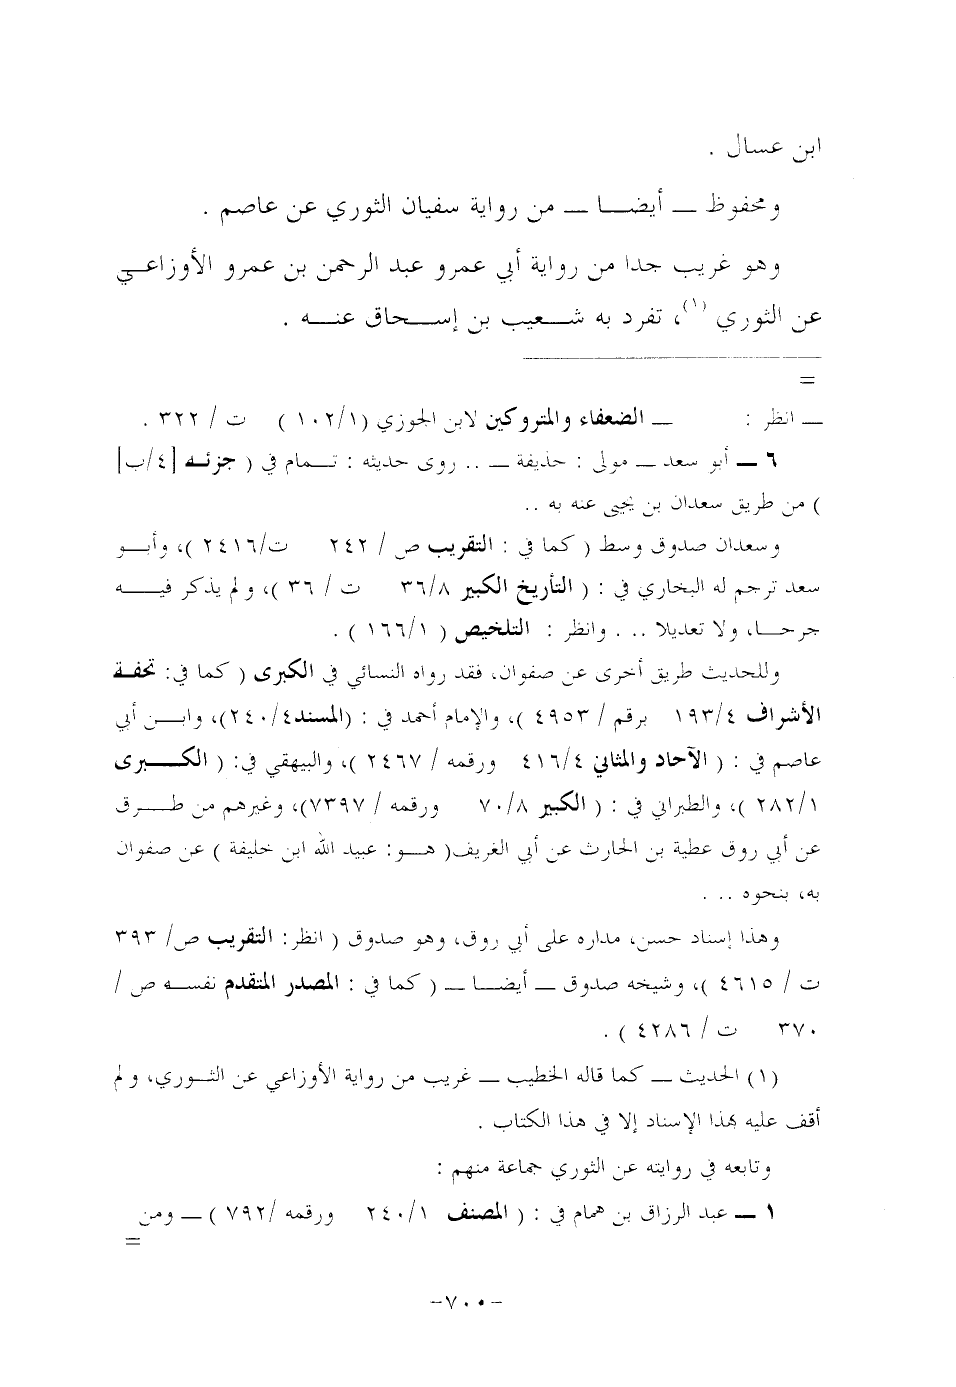 ابن عسال .
ومحفوظ ــ أيضـــا ــ من رواية سفيان الثوري عن عاصم .
وهو غريب جدا من رواية أبي عمرو عبد الرحمن بن عمرو الأوزاعـــي
عن الثوري (١)، تفرد به شـــعيب بن إســـحاق عنـــه .
=
ــ انظر : ــ الضعفاء والمتروكين لابن الجوزي (١٠٢/١ ) ت / ٣٢٢ .
٦ ــ أبو سعد ــ مولى : حذيفة ــ .. روى حديثه : تـــمام في ( جزئـــه [٤/ب]
) من طريق سعدان بن يحيى عنه به ..
وسعدان صدوق وسط ( كما في : التقريب ص / ٢٤٢ ت/٢٤١٦ )، وأبـــو
سعد ترجم له البخاري في : ( التأريخ الكبير ٣٦/٨ ت / ٣٦ )، و لم يذكر فيـــه
جرحـــا، ولا تعديلا .. . وانظر : التلخيص ( ١٦٦/١ ) .
وللحديث طريق أخرى عن صفوان، فقد رواه النسائي في الكبرى ( كما في: تحفـــة
الأشراف ١٩٣/٤ برقم / ٤٩٥٣ )، والإمام أحمد في : (المسند٢٤٠/٤)، وابـــن أبي
عاصم في : ( الآحاد والمثاني ٤١٦/٤ ورقمه / ٢٤٦٧ )، والبيهقي في: ( الكـــبرى
٢٨٢/١ )، والطبراني في : ( الكبير ٧٠/٨ ورقمه / ٧٣٩٧)، وغيرهم من طـــرق
عن أبي روق عطية بن الحارث عن أبي الغريف( هـــو: عبيد الله ابن خليفة ) عن صفوان
به، بنحوه .. .
وهذا إسناد حسن، مداره على أبي روق، وهو صدوق ( انظر: التقريب ص/ ٣٩٣
ت / ٤٦١٥ )، وشيخه صدوق ــ أيضـــا ــ ( كما في : المصدر المتقدم نفســـه ص /
٣٧٠ ت / ٤٢٨٦ ) .
(١) الحديث ــ كما قاله الخطيب ــ غريب من رواية الأوزاعي عن الثـــوري، و لم
أقف عليه بهذا الإسناد إلا في هذا الكتاب .
وتابعه في روايته عن الثوري جماعة منهم :
١ ــ عبد الرزاق بن همام في : ( المصنف ٢٤٠/١ ورقمه /٧٩٢ ) ــ ومن
=
-٧٠٠-